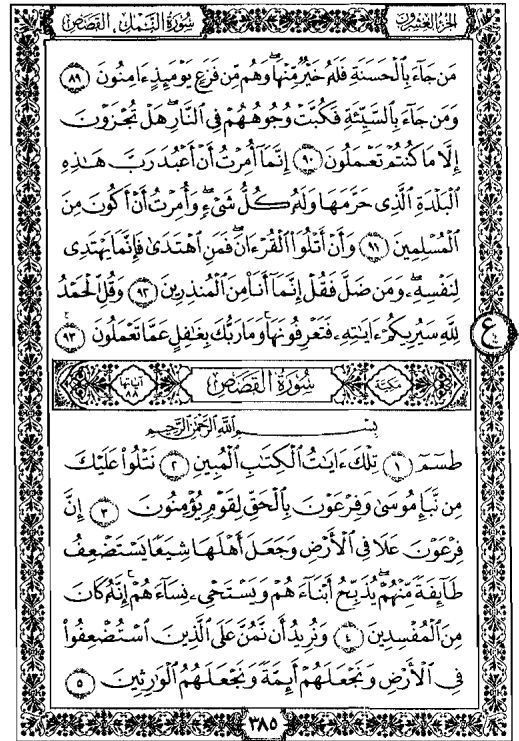 الجزء العشرون
سورة النمل ، القصص
مَن جَآءَ بِٱلْحَسَنَةِ فَلَهُۥ خَيْرٌ مِّنْهَا وَهُم مِّن فَزَعٍ يَوْمَئِذٍ ءَامِنُونَ ٨٩
وَمَن جَآءَ بِٱلسَّيِّئَةِ فَكُبَّتْ وُجُوهُهُمْ فِى ٱلنَّارِ هَلْ تُجْزَوْنَ
إِلَّا مَا كُنتُمْ تَعْمَلُونَ ٩٠ إِنَّمَآ أُمِرْتُ أَنْ أَعْبُدَ رَبَّ هَـٰذِهِ
ٱلْبَلْدَةِ ٱلَّذِى حَرَّمَهَا وَلَهُۥ كُلُّ شَىْءٍ وَأُمِرْتُ أَنْ أَكُونَ مِنَ
ٱلْمُسْلِمِينَ ٩١ وَأَنْ أَتْلُوَا۟ ٱلْقُرْءَانَ فَمَنِ ٱهْتَدَىٰ فَإِنَّمَا يَهْتَدِى
لِنَفْسِهِۦ وَمَن ضَلَّ فَقُلْ إِنَّمَآ أَنَا۠ مِنَ ٱلْمُنذِرِينَ ٩٢ وَقُلِ ٱلْحَمْدُ
لِلَّهِ سَيُرِيكُمْ ءَايَـٰتِهِۦ فَتَعْرِفُونَهَا وَمَا رَبُّكَ بِغَـٰفِلٍ عَمَّا تَعْمَلُونَ ٩٣
ع
مكية سورة القصص آياتها ٨٨
بِسْمِ ٱللَّهِ ٱلرَّحْمَـٰنِ ٱلرَّحِيمِ
طسٓمٓ ١ تِلْكَ ءَايَـٰتُ ٱلْكِتَـٰبِ ٱلْمُبِينِ ٢ نَتْلُوا۟ عَلَيْكَ
مِن نَّبَإِ مُوسَىٰ وَفِرْعَوْنَ بِٱلْحَقِّ لِقَوْمٍ يُؤْمِنُونَ ٣ إِنَّ
فِرْعَوْنَ عَلَا فِى ٱلْأَرْضِ وَجَعَلَ أَهْلَهَا شِيَعًا يَسْتَضْعِفُ
طَآئِفَةً مِّنْهُمْ يُذَبِّحُ أَبْنَآءَهُمْ وَيَسْتَحْىِۦ نِسَآءَهُمْ إِنَّهُۥ كَانَ
مِنَ ٱلْمُفْسِدِينَ ٤ وَنُرِيدُ أَن نَّمُنَّ عَلَى ٱلَّذِينَ ٱسْتُضْعِفُوا۟
فِى ٱلْأَرْضِ وَنَجْعَلَهُمْ أَئِمَّةً وَنَجْعَلَهُمُ ٱلْوَٰرِثِينَ ٥
٣٨٥